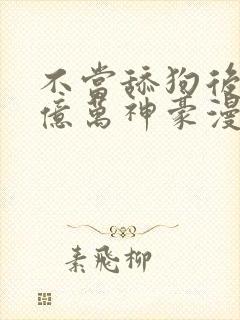 不當舔狗後
億萬神豪漫
素飛柳